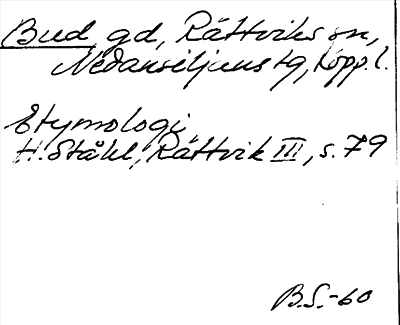 Bud gd, Rättviks sn,
Nedansiljans tg, Kopp. l.
Etymologi
H. Ståhl, Rättvik III, s. 79
B.S.-60